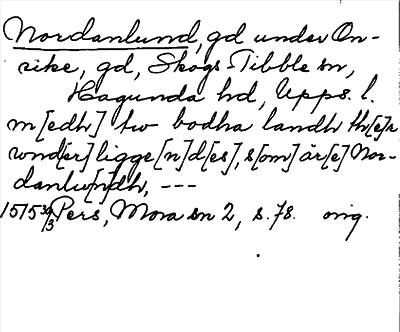 Nordanlund, gd under On-
rike, gd, Skogs-Tibble sn,
Hagunda hd, Upps. l.
m[edh] tw bodha landh th[e]r
wnd[er] ligge[n]d[es], s[om] är[e] Nor-
danlw[n]dh, ---
1515 30/3 Pers, Mora sn 2, s. 78. orig.